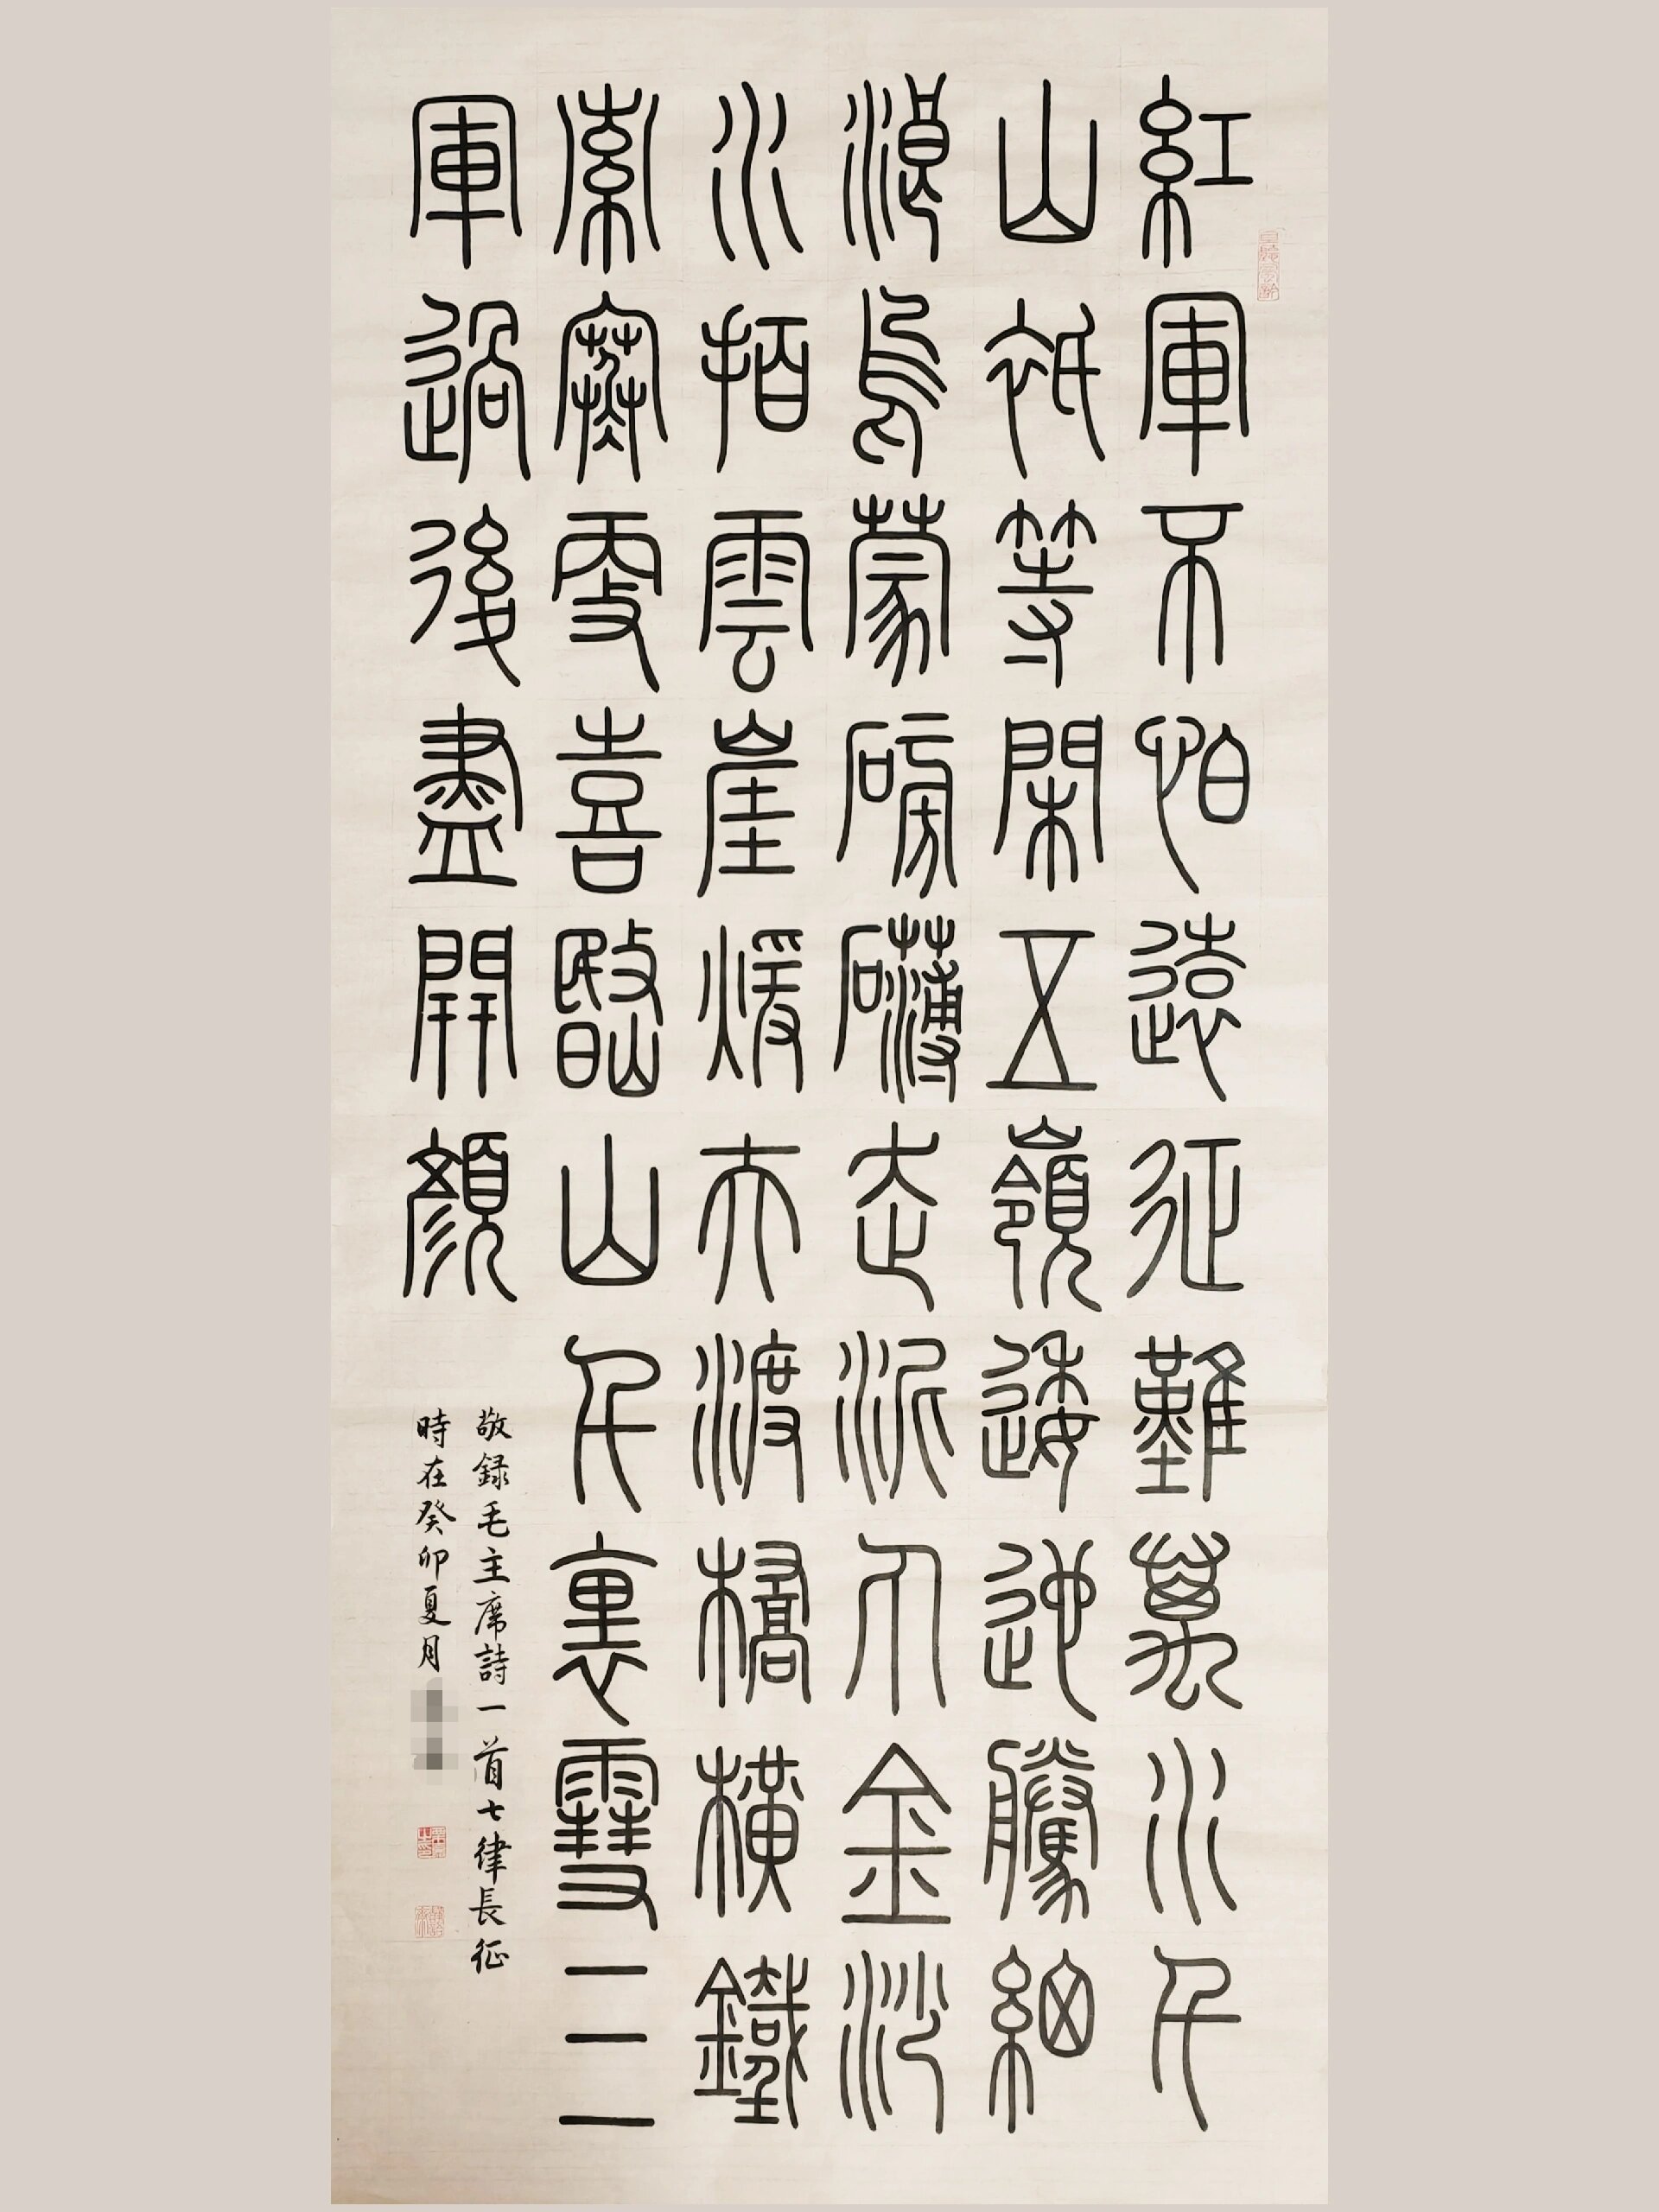 紅軍不怕遠征難萬水千
山祇等閑五嶺逶迤騰細
浪烏蒙磅礴走泥丸金沙
水拍雲崖煖大渡橋橫鐵
索寒更喜岷山千裏雪三
軍過後盡開顏
敬録毛主席詩一首七律長征
時在癸卯夏月